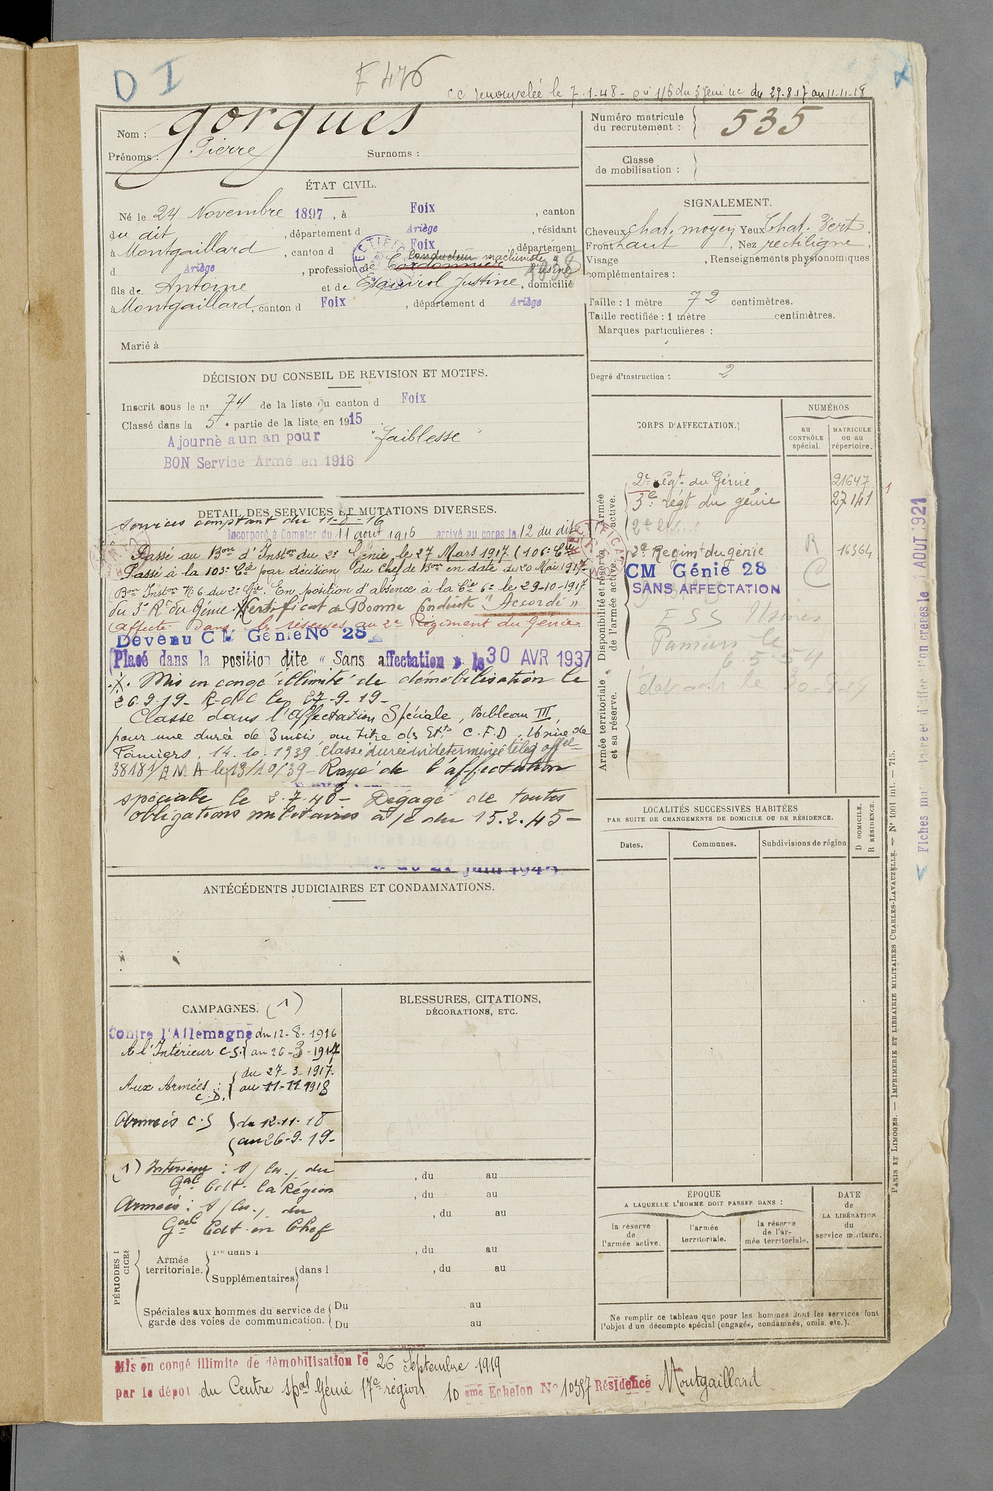 D I
F 476
cc renouvelée le 7-1-48 - du 29-8-17 au 11-11-18
Nom : Gorgues
Prénoms : Pierre Surnoms :
Numéro matricule du recrutement : 535
Classe de mobilisation :
ÉTAT CIVIL.
Né le 24 Novembre 1897, à Foix, canton
du dit, département d Ariège, résidant
à Montgaillard, canton d Foix, département
d Ariège, profession de Cordonnier conducteur machiniste d'usine
fils de Antoine et de Esquirol Justine, domicilié
à Montgaillard, canton d Foix, département d Ariège
Marié à
SIGNALEMENT.
Cheveux chat. moyen Yeux chat. vert
Front haut, Nez rectiligne
Visage , Renseignements physionomiques
complémentaires :
Taille : 1 mètre 72 centimètres.
Taille rectifiée : 1 mètre centimètres.
Marques particulières :
Degré d'instruction : 2
DÉCISION DU CONSEIL DE REVISION ET MOTIFS.
Inscrit sous le n° 74 de la liste du canton d Foix
Classé dans la 5e partie de la liste en 1915
Ajourné a un an pour "faiblesse"
BON Service Armé en 1916
CORPS D'AFFECTATION.
NUMÉROS
au contrôle spécial.
matricule ou au répertoire.
Disponibilité et réserve de l'armée active.
Armée active.
2e Régt du Génie 21647
3e Régt du génie 27141
2e Regimt du génie 16564
CM Génie 28
SANS AFFECTATION
ESS Usines
Pamiers le
6-5-54
Armée territoriale et sa réserve.
DETAIL DES SERVICES ET MUTATIONS DIVERSES.
Services comptant du 11-8-16
Incorporé à Compter du 11 aout 1916 arrivé au corps le 12 du dit
Passé au Bon d'Inston du 2e Génie le 27 Mars 1917 (106e Cie)
Passé à la 103e Cie par décision du Chef de Bon en date du 20 Mai 1917
Bon Inston No 6 du 2e Gie. En position d'absence à la Cie 6e le 29-10-1917
du 3e Rt du Génie. Certificat de Bonne Conduite "Accordé"
Affecté dans les réserves au 2e Régiment du Génie.
Devenu CM Génie No 28
Placé dans la position dite "Sans affectation" le 30 AVR 1937
Mis en congé illimité de démobilisation le
26.9.19. R.d.C le 27-9-19-
Classé dans l'Affectation Spéciale, Tableau III,
pour une durée de 3 mois, au titre des Ets C.F.D. Usine de
Pamiers. 14.10.1939 classé durée indéterminée télég offel
38181/EMA le 13/10/39 - Rayé de l'affectation
spéciale le 2-7-40 - Dégagé de toutes
obligations militaires à/c du 15.2.45 -
LOCALITÉS SUCCESSIVES HABITÉES
PAR SUITE DE CHANGEMENTS DE DOMICILE OU DE RÉSIDENCE.
Dates. Communes. Subdivisions de région
D DOMICILE.
R RÉSIDENCE.
ANTÉCÉDENTS JUDICIAIRES ET CONDAMNATIONS.
CAMPAGNES. (1)
Contre l'Allemagne du 12-8-1916
A l'Intérieur C.S. au 26-3-1917
Aux Armées : C.D. du 27-3-1917
au 11-11-1918
Armées C.S du 12-11-18
au 26-9-19-
(1) Intérieur : s/ les / du
Gal Cdt la Région
Armées : s/ les / du
Gal Cdt en Chef
BLESSURES, CITATIONS,
DÉCORATIONS, ETC.
, du au
, du au
, du au
, du au
, du au
Armée territoriale. Supplémentaires dans l
Spéciales aux hommes du service de garde des voies de communication.
Du au
Du au
ÉPOQUE
A LAQUELLE L'HOMME DOIT PASSER DANS :
la réserve de l'armée active.
l'armée territoriale.
la réserve de l'armée territoriale.
DATE DE LA LIBÉRATION du service militaire.
Ne remplir ce tableau que pour les hommes dont les services font
l'objet d'un décompte spécial (engagés, condamnés, omis, etc.).
Mis en congé illimité de démobilisation le 26 Septembre 1919
par le dépot du Centre spal Génie 17e région 10 eme Echelon No 10597 Résidence Montgaillard
PARIS ET LIMOGES. — IMPRIMERIE ET LIBRAIRIE MILITAIRES CHARLES-LAVAUZELLE. — N° 1001 int. — 715.